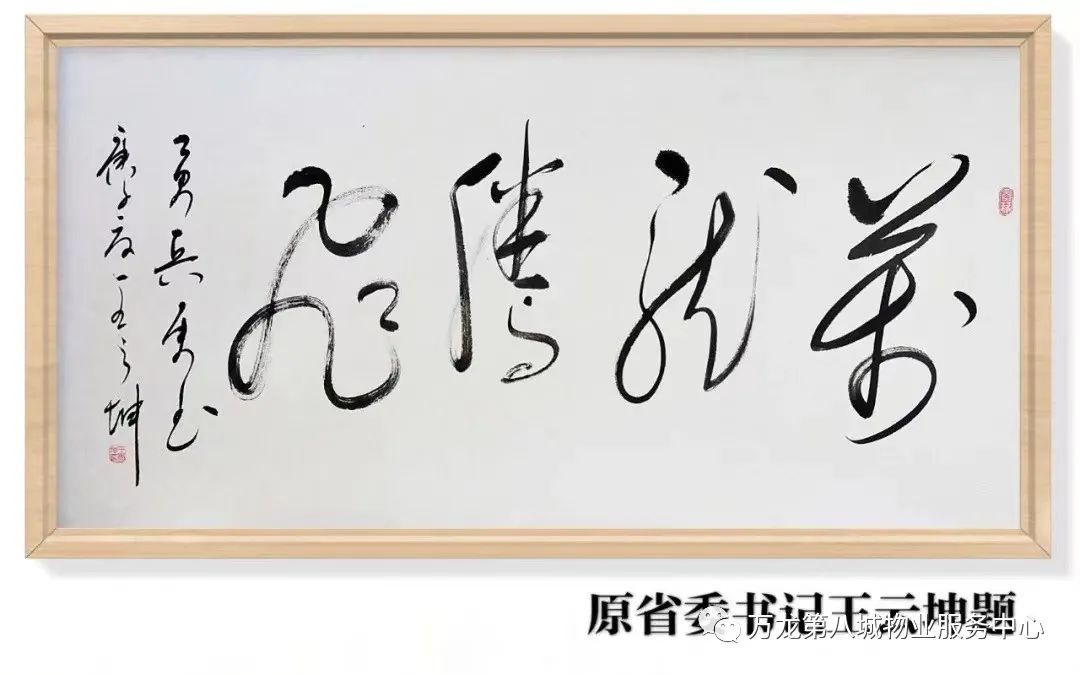 萬龍騰飛
庚子夏王云坤
原省委书记王云坤题
万龙第八城物业服务中心